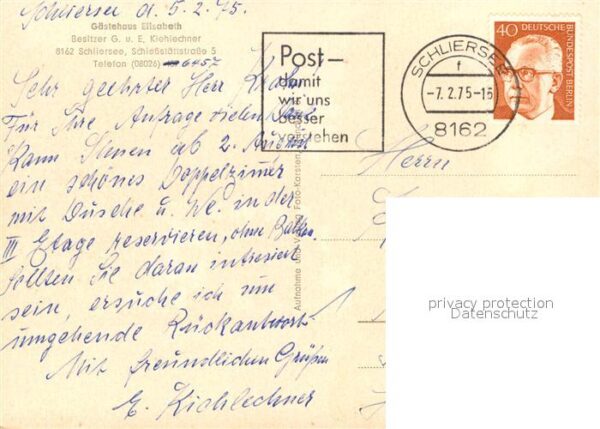 Schliersee d. 5.2.75.
Gästehaus Elisabeth
Besitzer G. u. E. Kiehlechner
8162 Schliersee, Schießstättstraße 5
Telefon (08026) 6457
Sehr geehrter Herr
Für Ihre Anfrage vielen Dank
Kann Ihnen ab 2. August
ein schönes Doppelzimmer
mit Dusche u. Wc. in der
III Etage reservieren, ohne Balkon.
Sollten Sie daran intresiert
sein, ersuche ich um
umgehende Rückantwort
Mit freundlichen Grüßen
E. Kiehlechner
Post-
damit
wir uns
besser
verstehen
SCHLIERSEE
f
-7.2.75-16
8162
40 DEUTSCHE BUNDESPOST BERLIN
Herrn
privacy protection
Datenschutz